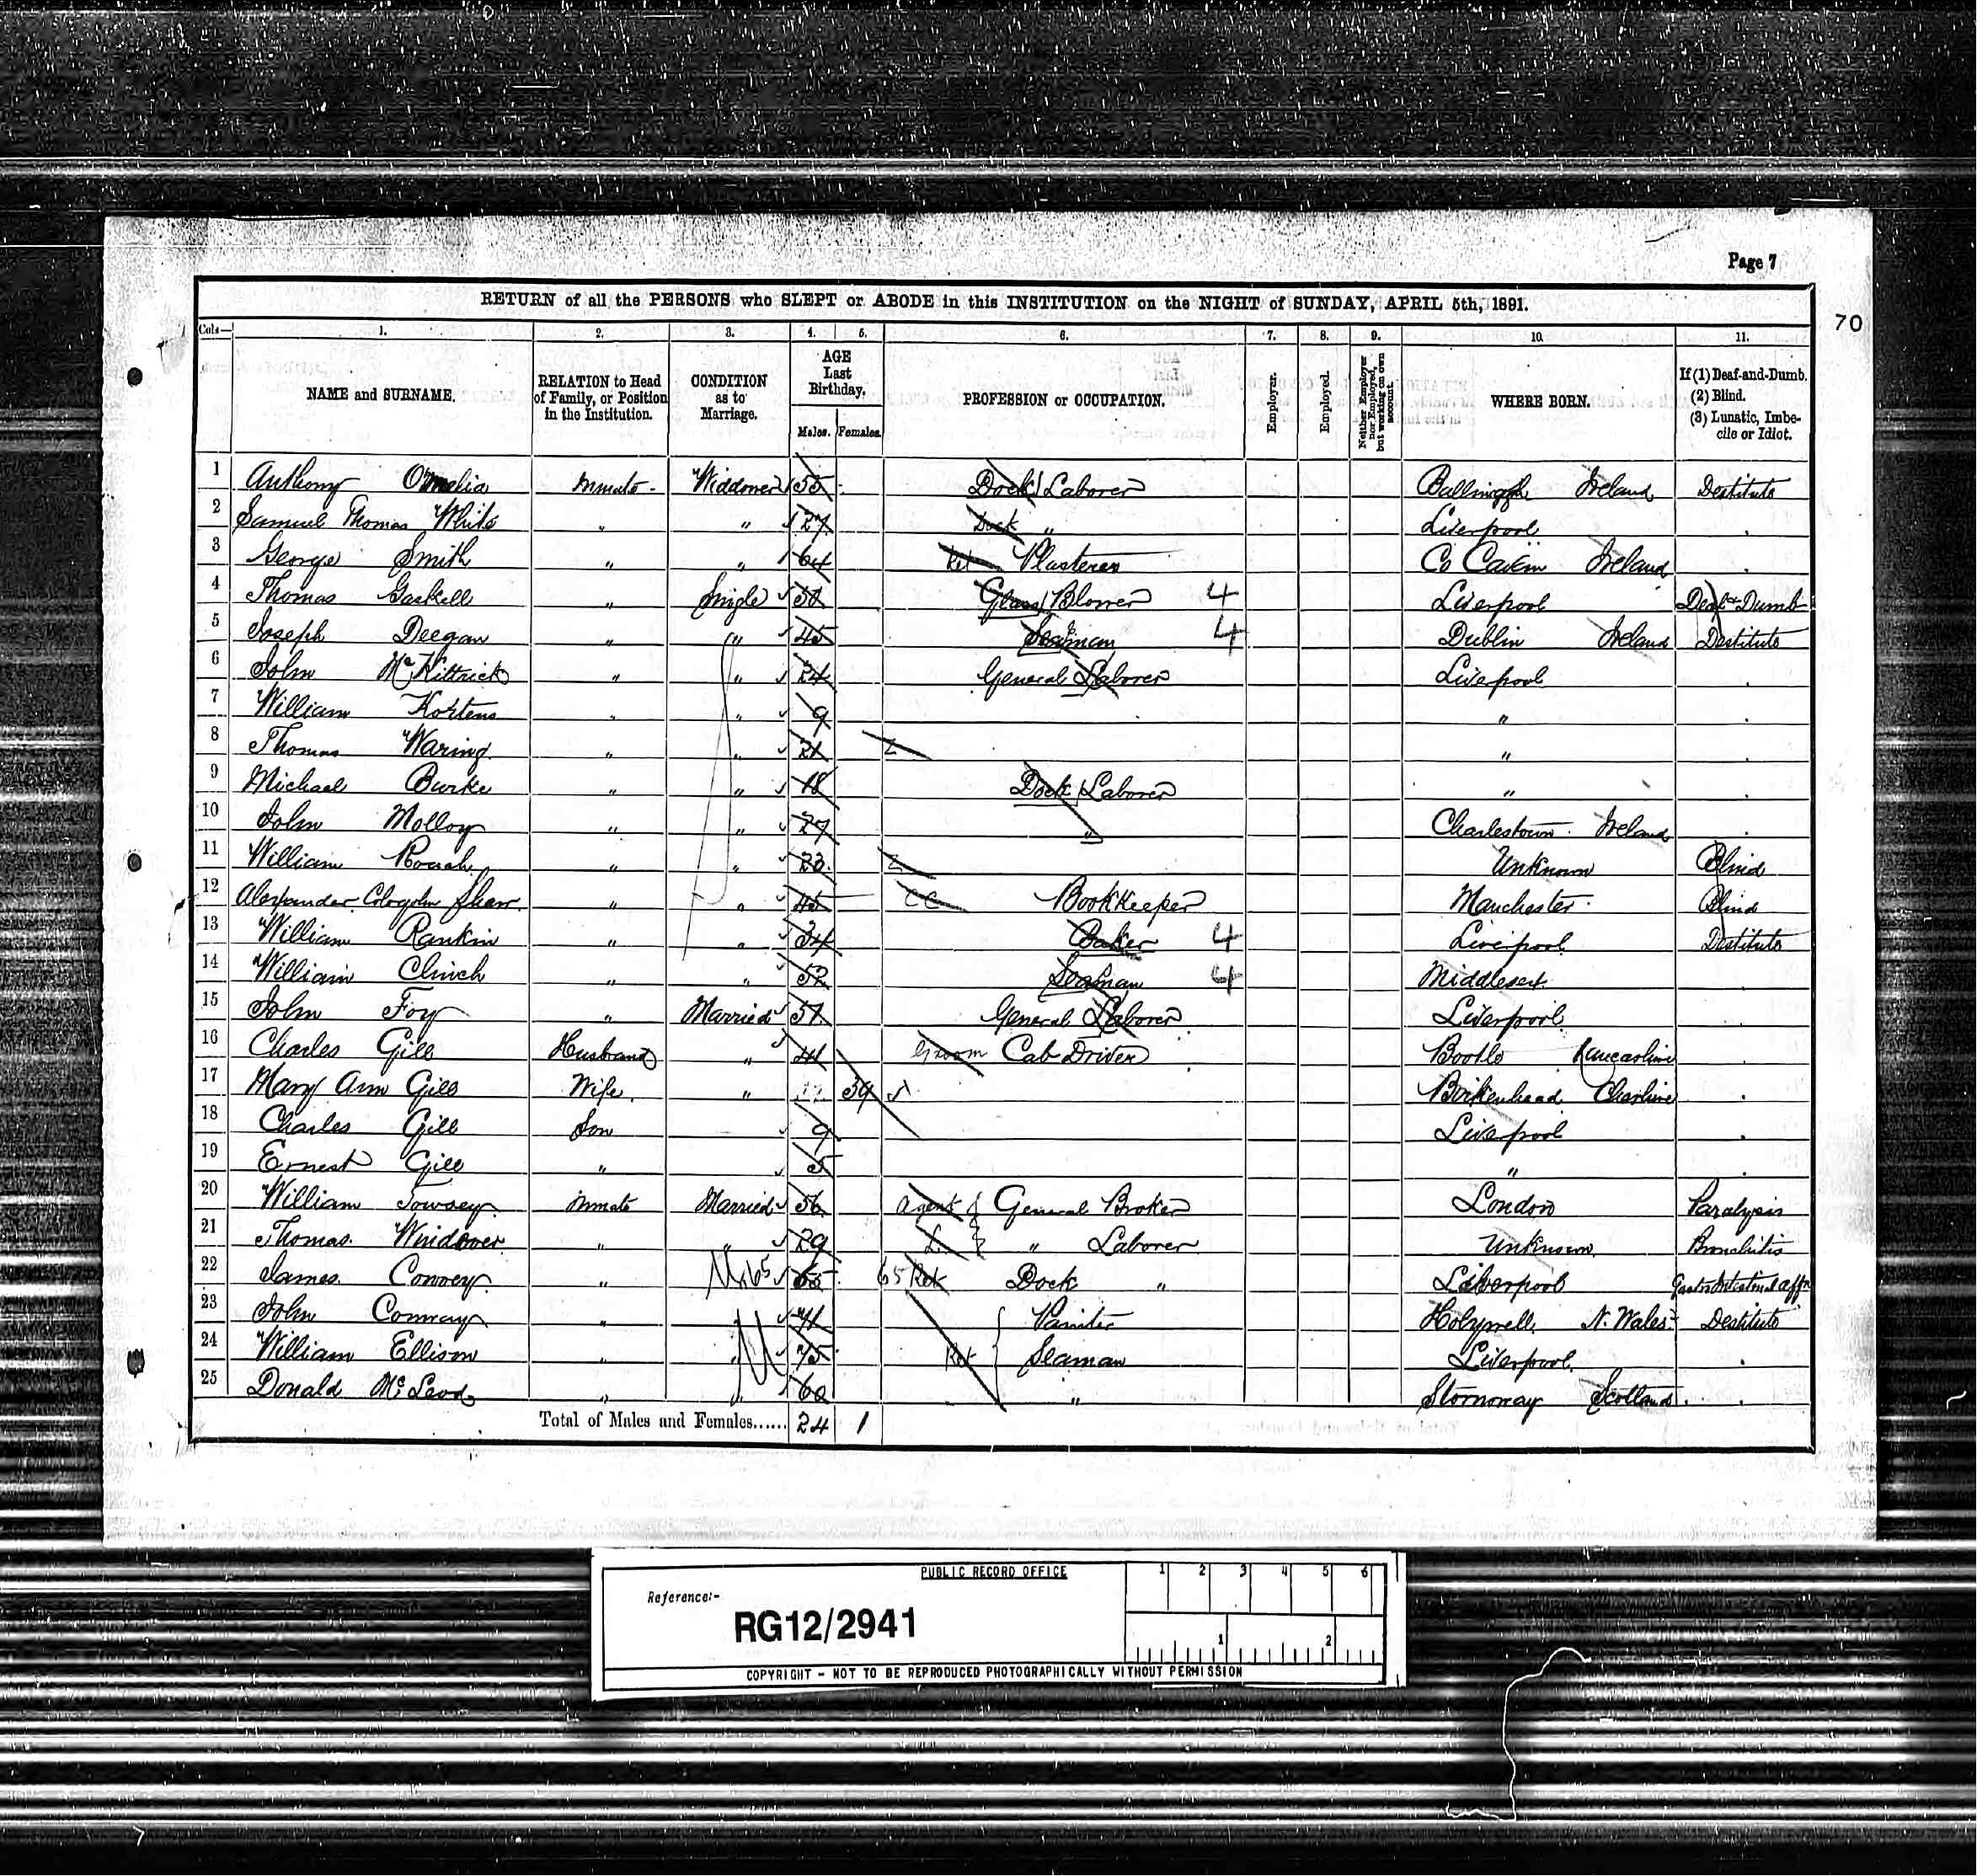 Page 7
70
RETURN of all the PERSONS who SLEPT or ABODE in this INSTITUTION on the NIGHT of SUNDAY, APRIL 5th, 1891.
Cols— 1. 2. 3. 4. 5. 6. 7. 8. 9. 10. 11.
NAME and SURNAME. RELATION to Head of Family, or Position in the Institution. CONDITION as to Marriage. AGE Last Birthday. Males. Females. PROFESSION or OCCUPATION. Employer. Employed. Neither Employer nor Employed, but working on own account. WHERE BORN. If (1) Deaf-and-Dumb. (2) Blind. (3) Lunatic, Imbecile or Idiot.
1 Anthony Inmate Widdower 55 Dock Laborer Ireland Destitute
2 Samuel Thomas White " " 27 Dock " Liverpool
3 George Smith " " 64 Ret Plasterer Co Cavan Ireland
4 Thomas Gaskell " Single Glass Blower 4 Liverpool Deaf & Dumb
5 Joseph Deegan " " 45 Seaman 4 Dublin Ireland Destitute
6 John McKittrick " " 24 General Laborer Liverpool
7 William " " 9 "
8 Thomas Waring " " 21 "
9 Michael Burke " " 18 Dock Laborer "
10 John Molloy " " 27 " Charlestown Ireland
11 William " " 23 Unknown Blind
12 Alexander Shaw " " 45 CC Bookkeeper Manchester Blind
13 William Rankin " " 34 Baker 4 Liverpool Destitute
14 William Clinch " " 52 Seaman 4 Middlesex
15 John Foy " Married General Laborer Liverpool
16 Charles Gill Husband " 41 Groom Cab Driver Bootle Lancashire
17 Mary Ann Gill Wife " 39 Birkenhead Cheshire
18 Charles Gill Son 9 Liverpool
19 Ernest Gill " 5 "
20 William Towsey Inmate Married 56 Agent General Broker London Paralysis
21 Thomas Windover " " 29 " Laborer Unknown Bronchitis
22 James Convey " M 65 65 65 Ret Dock " Liverpool
23 John Conway " " Painter Holywell N. Wales Destitute
24 William Ellison " " 75 Ret Seaman Liverpool
25 Donald McLeod " " 60 " Stornoway Scotland
Total of Males and Females...... 24 1
PUBLIC RECORD OFFICE
1 2 3 4 5 6
Reference:-
RG12/2941
1 2
COPYRIGHT - NOT TO BE REPRODUCED PHOTOGRAPHICALLY WITHOUT PERMISSION